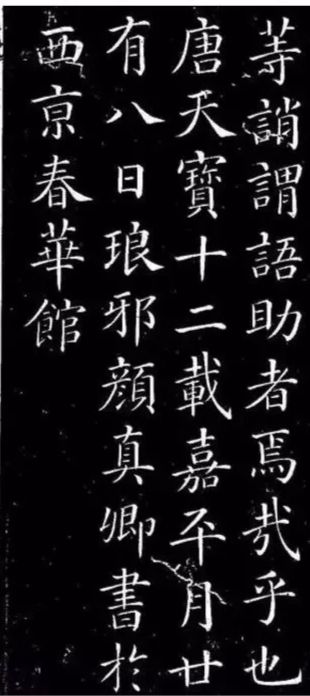 等誚謂語助者焉哉乎也
唐天寶十二載嘉平月廿
有八日琅邪顔真卿書於
西京春華館